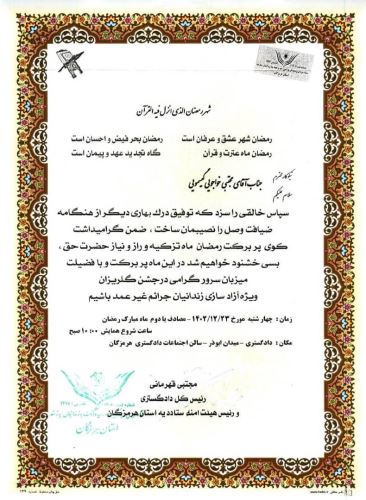 شهر رمضان الذی انزل فیه القرآن
رمضان شهر عشق و عرفان است رمضان بحر فیض و احسان است
رمضان ماه عترت و قرآن گاه تجدید عهد و پیمان است
نیکوکار محترم
جناب آقای مجتبی خواجویی گیسویی
سلام علیکم
سپاس خالقی را سزد که توفیق درک بهاری دیگر از هنگامه
ضیافت وصل را نصیبمان ساخت ، ضمن گرامیداشت
کوی پر برکت رمضان ماه تزکیه و راز و نیاز حضرت حق ،
بسی خشنود خواهیم شد در این ماه پر برکت و با فضیلت
میزبان سرور گرامی در جشن گلریزان
ویژه آزاد سازی زندانیان جرائم غیر عمد باشیم
زمان : چهار شنبه مورخ ۱۴۰۲/۱۲/۲۳ -مصادف با دوم ماه مبارک رمضان
ساعت شروع همایش ۱۰:۰۰ صبح
مکان : دادگستری -میدان ابوذر -سالن اجتماعات دادگستری هرمزگان
مجتبی قهرمانی
رئیس کل دادگستری
و رئیس هیئت امنه ستاد دیه استان هرمزگان
استان هرمزگان